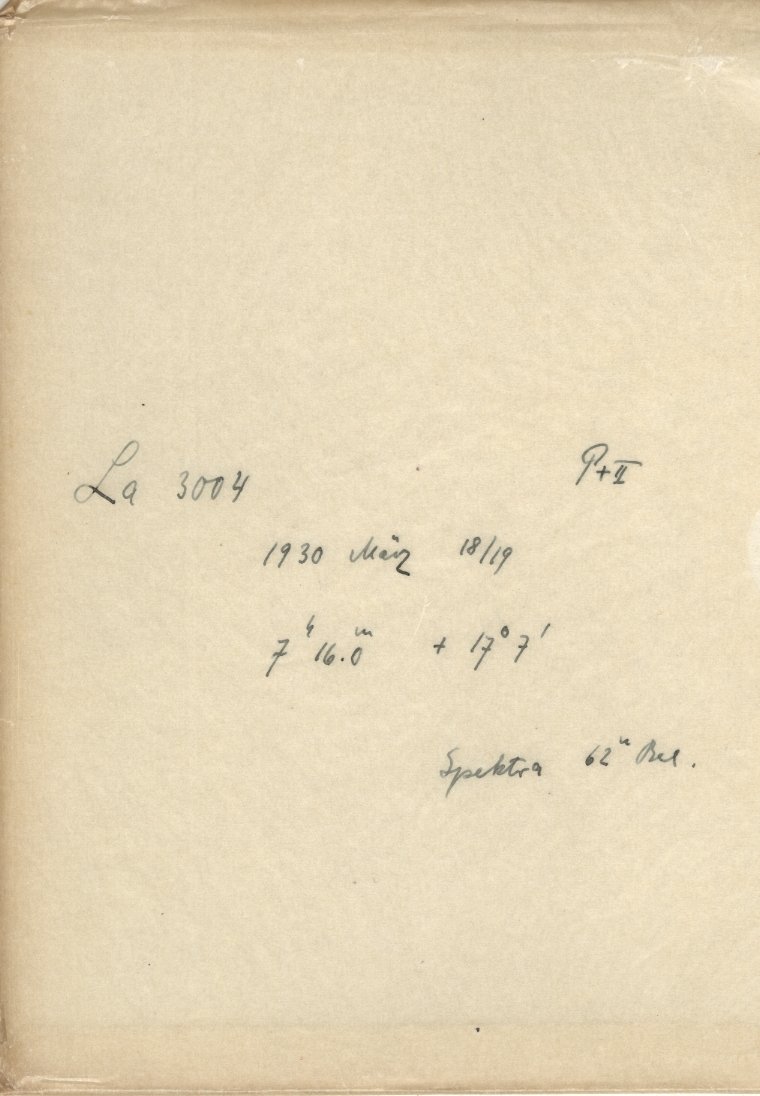 La 3004 P+II
1930 März 18/19
7ʰ 16.0ᵐ + 17° 7'
Spektra 62ᵐ Bel.